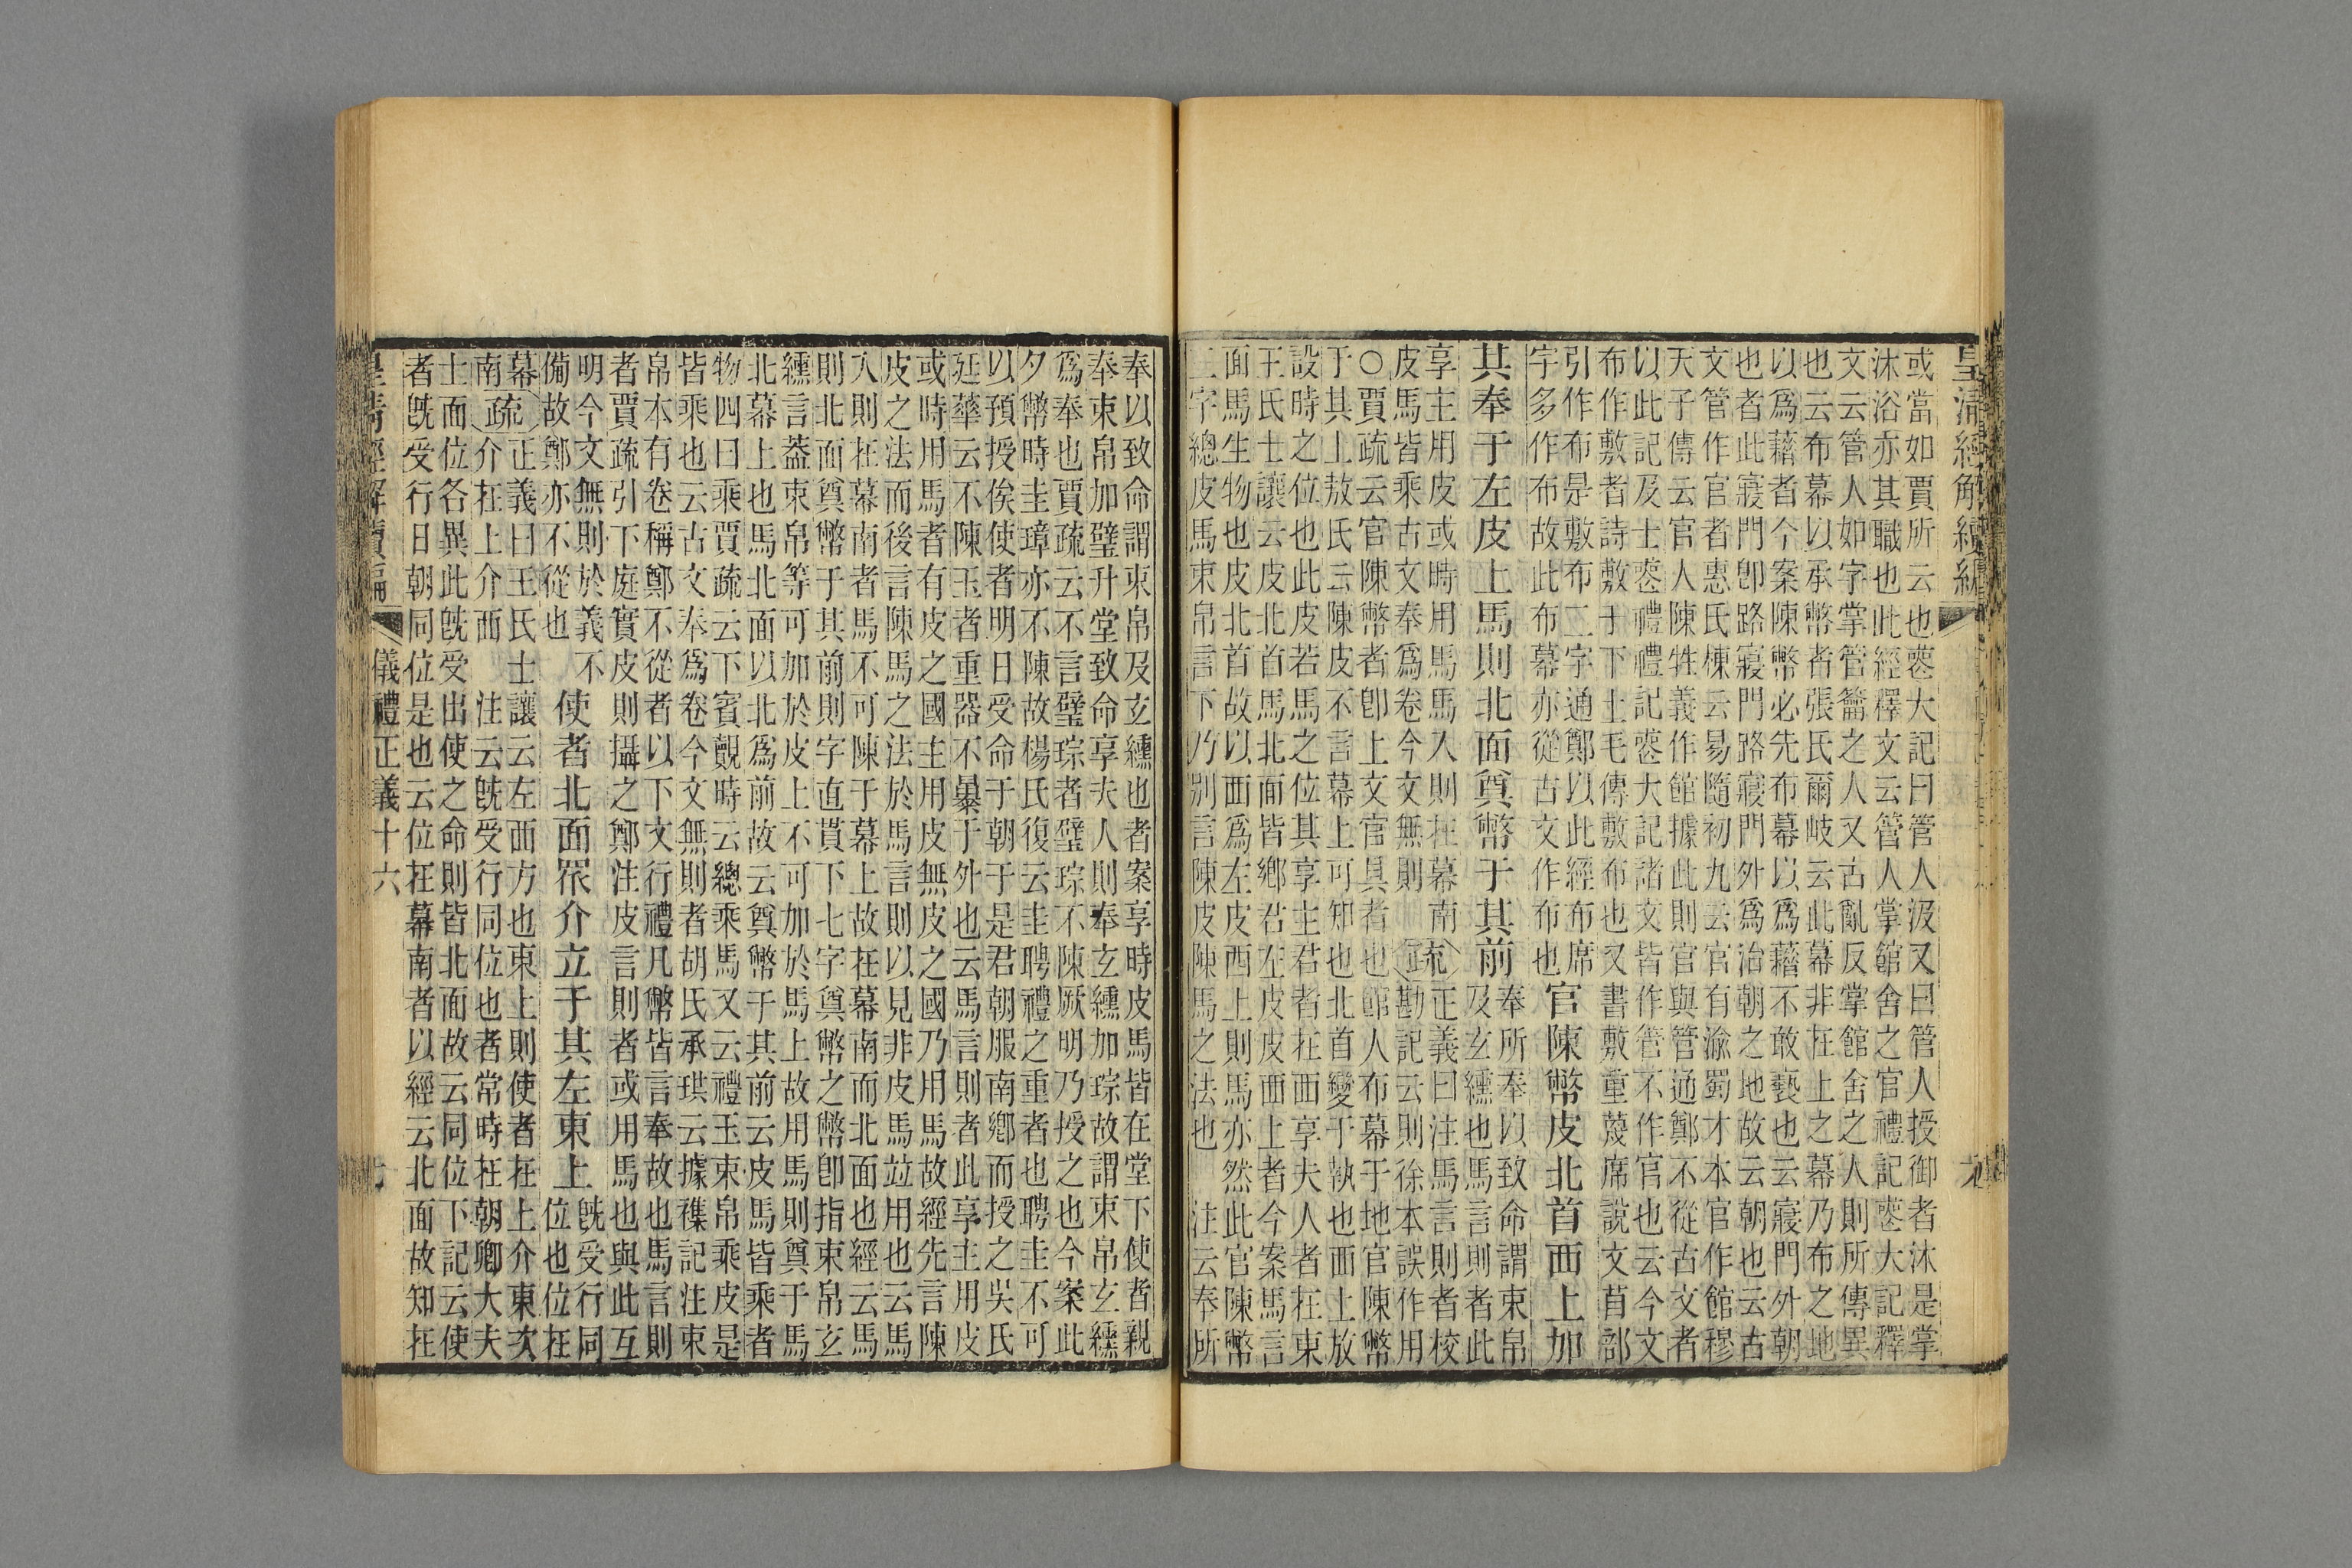 皇清經解續編
九
或當如賈所云也喪大記曰管人汲又曰管人授御者沐是掌
沐浴亦其職也此經釋文云管人掌館舍之官禮記喪大記釋
文云管人如字掌管籥之人又古亂反掌館舍之人則所傳異
也云布幕以承幣者張氏爾岐云此幕非在上之幕乃布之地
以爲藉者今案陳幣必先布幕以爲藉不敢褻也云寢門外朝
也者此寢門卽路寢門路寢門外爲治朝之地故云朝也云古
文管作官者惠氏棟云易隨初九云官有渝蜀才本官作館穆
天子傳云官人陳牲義作館據此則官與管通鄭不從古文者
以此記及士喪禮禮記喪大記諸文皆作管不作官也云今文
布作敷者詩敷于下土毛傳敷布也又書敷重蔑席說文苜部
引作布是敷布二字通鄭以此經布席
字多作布故此布幕亦從古文作布也
官陳幣皮北首西上加
其奉于左皮上馬則北面奠幣于其前
奉所奉以致命謂束帛
及玄纁也馬言則者此
享主用皮或時用馬馬入則在幕南
皮馬皆乘古文奉爲卷今文無則
疏
正義曰注馬言則者校
勘記云則徐本誤作用
○賈疏云官陳幣者卽上文官具者也館人布幕于地官陳幣
于其上敖氏云陳皮不言幕上可知也北首變于執也西上放
設時之位也此皮若馬之位其享主君者在西享夫人者在東
王氏士讓云皮北首馬北面皆鄉君左皮皮西上者今案馬言
面馬生物也皮北首故以西爲左皮西上則馬亦然此官陳幣
二字總皮馬束帛言下乃別言陳皮陳馬之法也 注云奉所
奉以致命謂束帛及玄纁也者案享時皮馬皆在堂下使者親
奉束帛加璧升堂致命享夫人則奉玄纁加琮故謂束帛玄纁
爲奉也賈疏云不言璧琮者璧琮不陳厥明乃授之也今案此
夕幣時圭璋亦不陳故楊氏復云圭聘禮之重者也聘圭不可
以預授俟使者明日受命于朝于是君朝服南鄉而授之吳氏
廷華云不陳玉者重器不暴于外也云馬言則者此享主用皮
或時用馬者有皮之國主用皮無皮之國乃用馬故經先言陳
皮之法而後言陳馬之法於馬言則以見非皮馬竝用也云馬
入則在幕南者馬不可陳于幕上故在幕南而北面也經云馬
則北面奠幣于其前則字直貫下七字奠幣之幣卽指束帛玄
纁言葢束帛等可加於皮上不可加於馬上故用馬則奠于馬
北幕上也馬北面以北爲前故云奠幣于其前云皮馬皆乘者
物四曰乘賈疏云下賓覿時云總乘馬又云禮玉束帛乘皮是
皆乘也云古文奉爲卷今文無則者胡氏承珙云據襍記注束
帛本有卷稱鄭不從者以下文行禮凡幣皆言奉故也馬言則
者賈疏引下庭實皮則攝之鄭注皮言則者或用馬也與此互
明今文無則於義不
備故鄭亦不從也
使者北面眾介立于其左東上
旣受行同
位也位在
幕
南
疏
正義曰王氏士讓云左西方也東上則使者在上介東次
介在上介西 注云旣受行同位也者常時在朝卿大夫
士面位各異此旣受出使之命則皆北面故云同位下記云使
者旣受行日朝同位是也云位在幕南者以經云北面故知在
皇清經解續編
儀禮正義十六